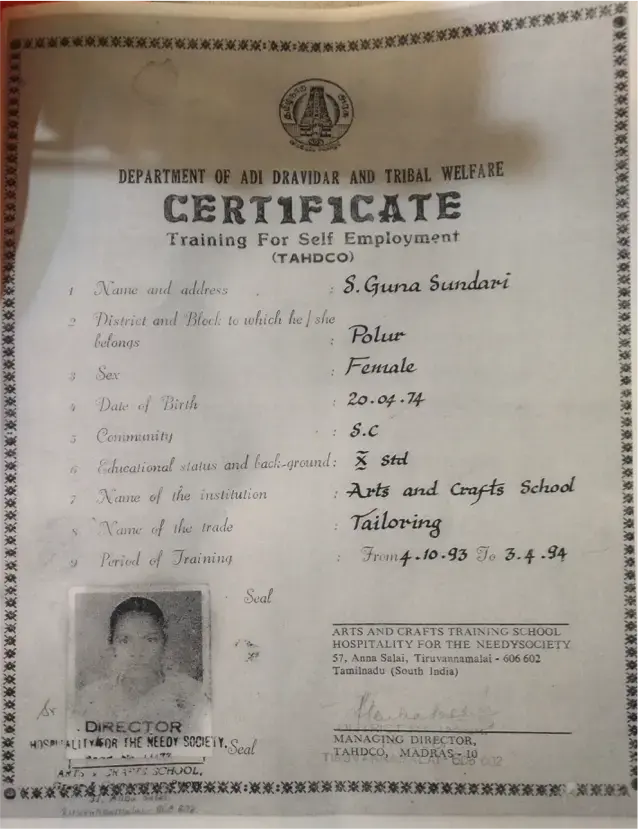 தமிழ்நாடு அரசு
DEPARTMENT OF ADI DRAVIDAR AND TRIBAL WELFARE
CERTIFICATE
Training For Self Employment
(TAHDCO)
1 Name and address : S. Guna Sundari
2 District and Block to which he / she
belongs : Polur
3 Sex : Female
4 Date of Birth : 20.04.74
5 Community : S.C
6 Educational status and back-ground : X Std
7 Name of the institution : Arts and Crafts School
8 Name of the trade : Tailoring
9 Period of Training : From 4.10.93 To 3.4.94
Seal
ARTS AND CRAFTS TRAINING SCHOOL
HOSPITALITY FOR THE NEEDYSOCIETY
57, Anna Salai, Tiruvannamalai - 606 602
Tamilnadu (South India)
DIRECTOR
HOSPITALITY FOR THE NEEDY SOCIETY,
Seal
MANAGING DIRECTOR,
TAHDCO, MADRAS - 10
TIRUVANNAMALAI 606 602
ARTS & CRAFTS SCHOOL,